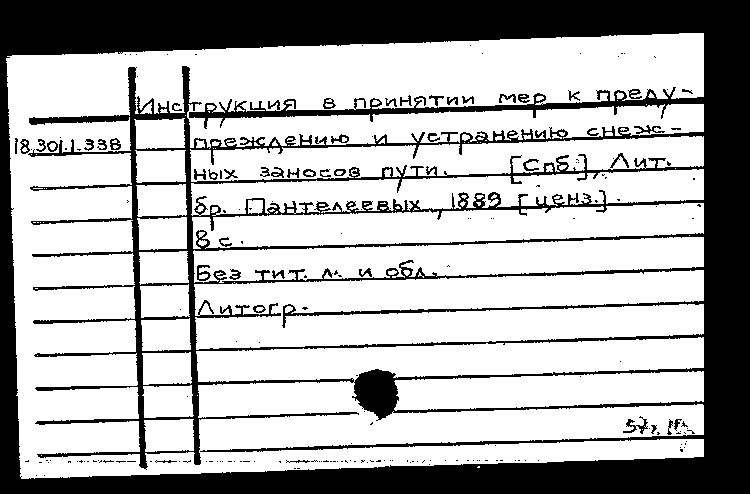 Инструкция в принятии мер к преду-
18.301.1.338 преждению и устранению снеж-
ных заносов пути. [Спб.], Лит.
бр. Пантелеевых, 1889 [ценз.].
8 с.
Без тит. л. и обл.
Литогр.
57г.